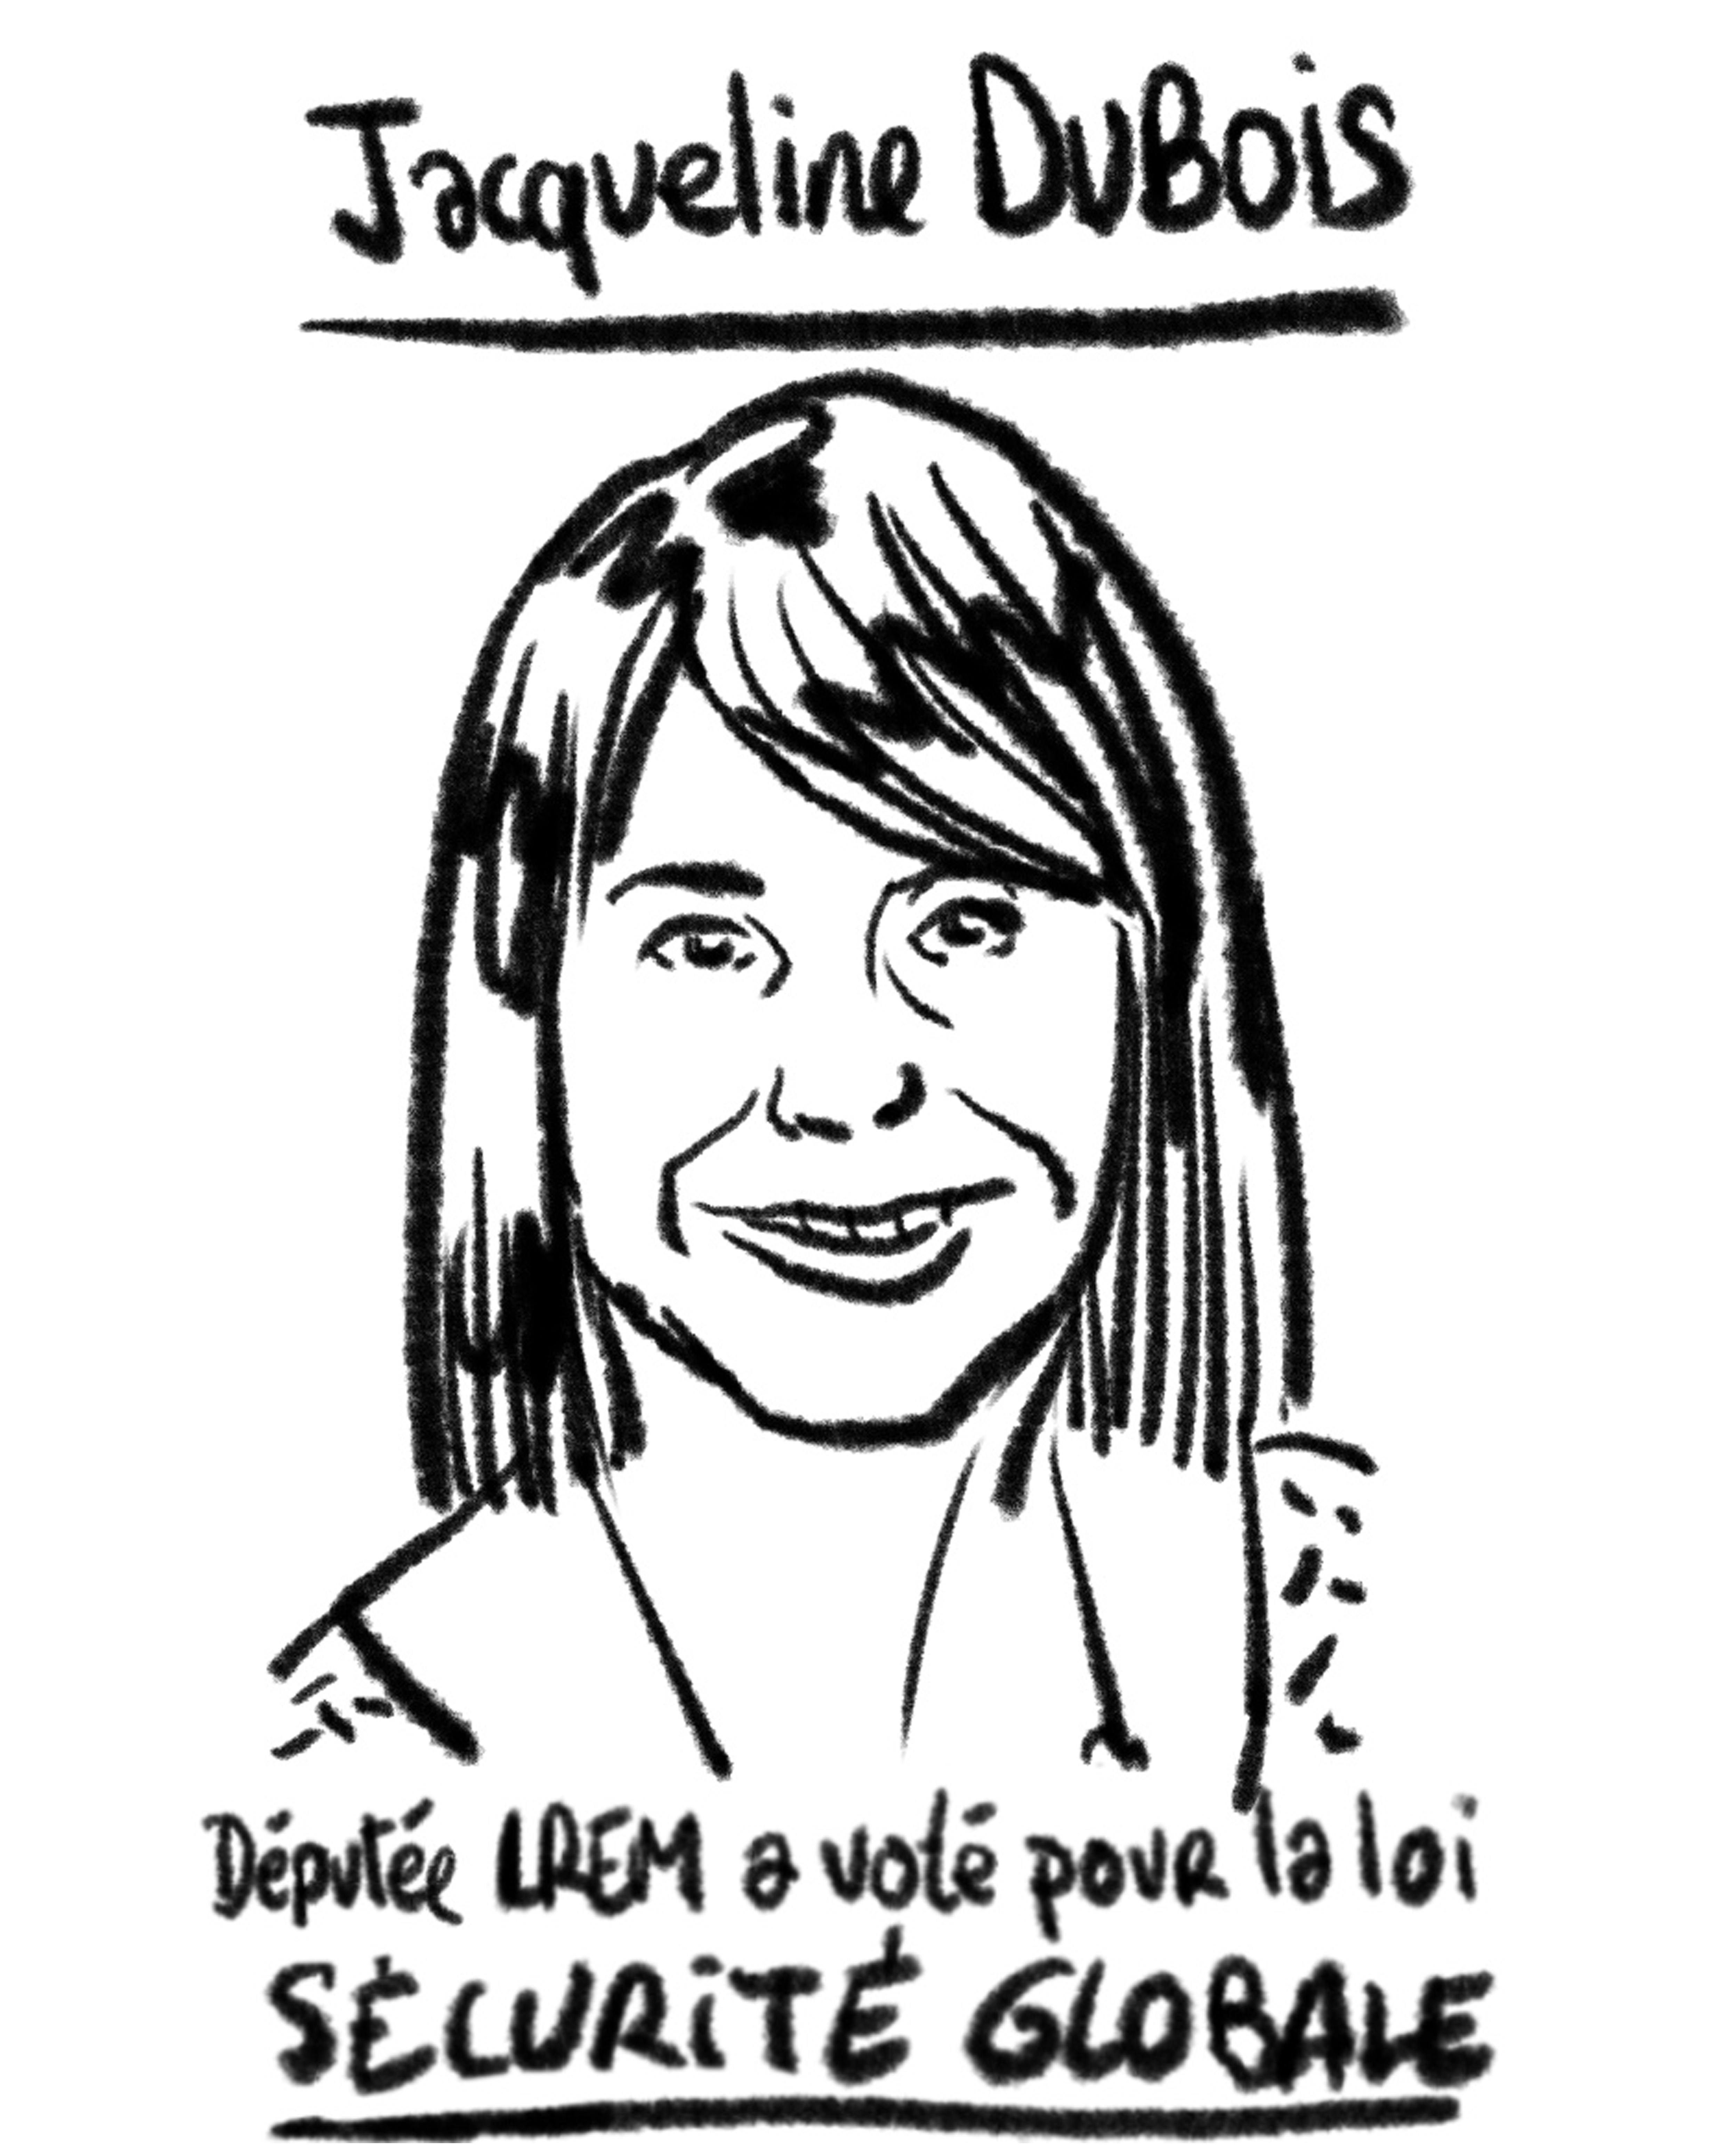 Jacqueline DUBOiS
Députée LREM a voté pouR la loi
SÉCURiTÉ GLOBALE